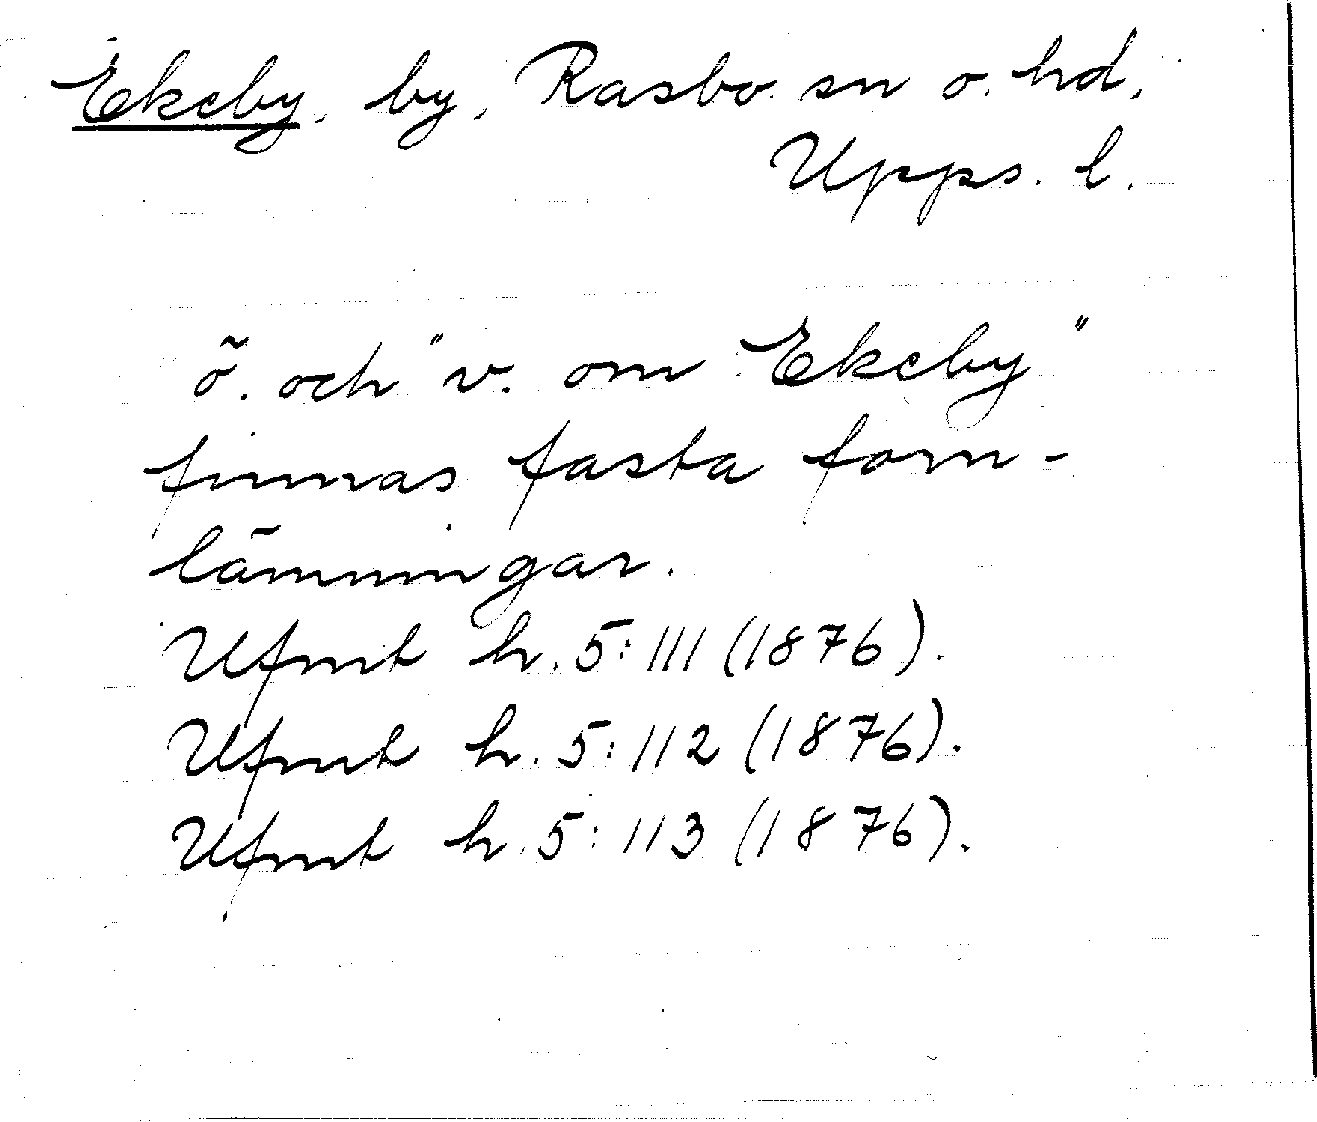 Ekeby, by, Rasbo sn o. hd,
Upps. l.
ö. och "v. om Ekeby"
finnas fasta forn-
lämningar.
Ufmt h. 5:111 (1876).
Ufmt h. 5:112 (1876).
Ufmt h. 5:113 (1876).